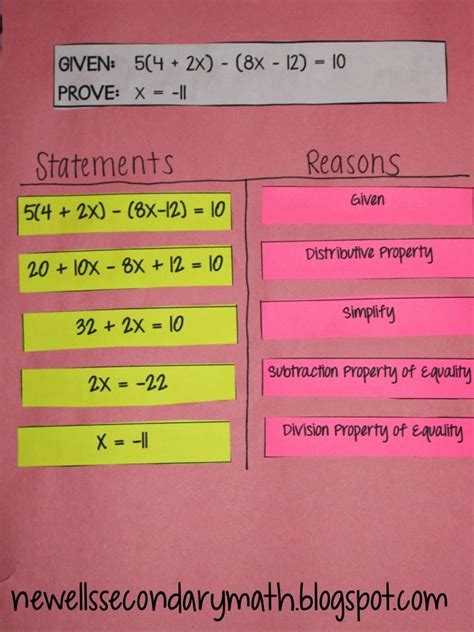 GIVEN: 5(4 + 2x) - (8x - 12) = 10
PROVE: x = -11
Statements
Reasons
5(4 + 2x) - (8x-12) = 10
Given
20 + 10x - 8x + 12 = 10
Distributive Property
32 + 2x = 10
Simplify
2x = -22
Subtraction Property of Equality
x = -11
Division Property of Equality
newellssecondarymath.blogspot.com